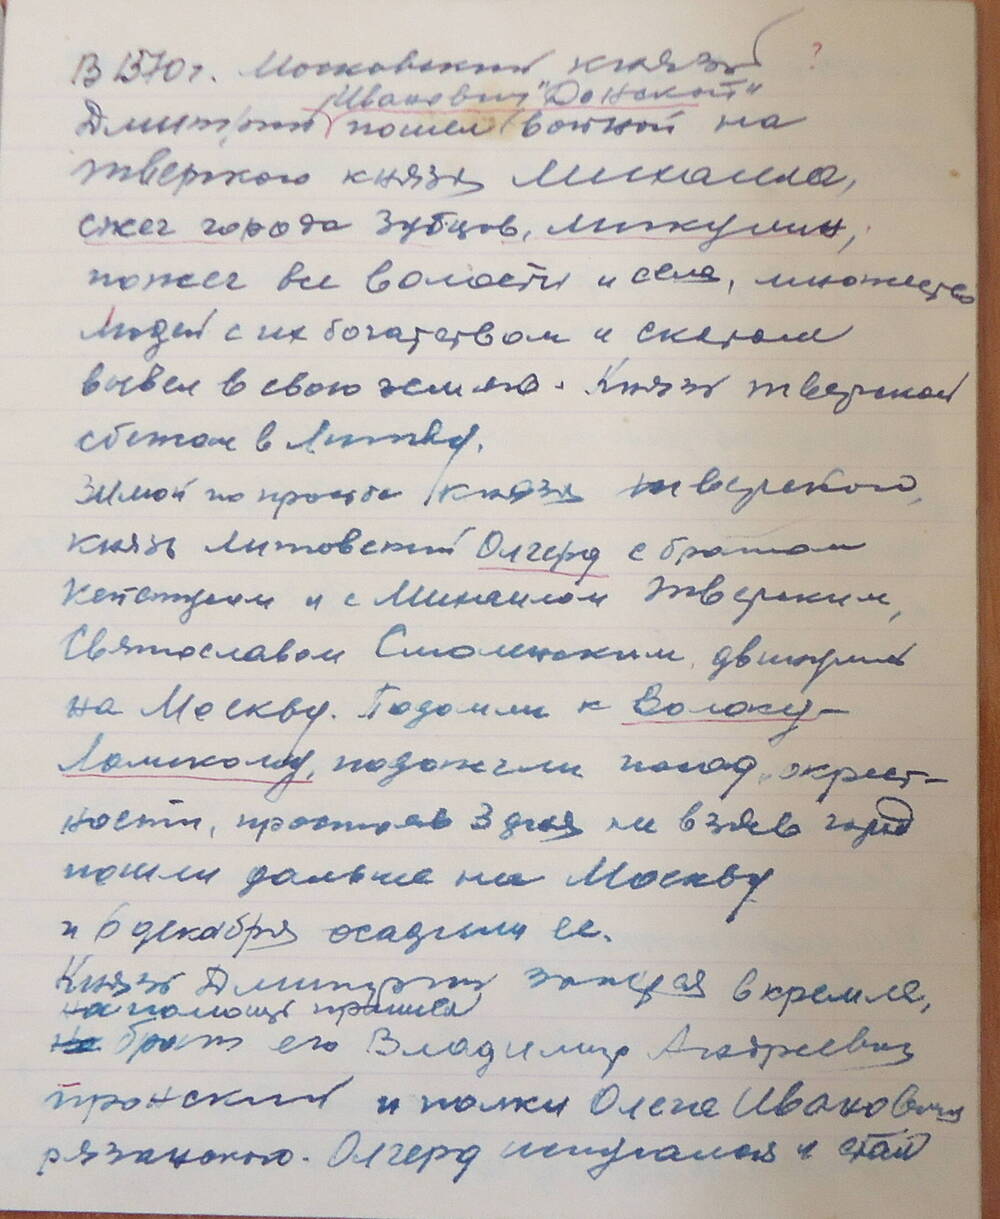 В 1370 г. Московский князь ?
Иванович "Донской"
Дмитрий пошел войной на
тверского князя Михаила,
сжег города Зубцов, Микулин,
пожег все волости и села, множество
людей с их богатством и скотом
вывел в свою землю. Князь тверской
сбежал в Литву.
Зимой по просьбе князя тверского,
князь Литовский Олгерд с братом
Кейстутом и с Михаилом Тверским,
Святославом Смоленским двинулись
на Москву. Подошли к Волоку-
Ламскому, подожгли посад, окрест-
ности, простояв 3 дня не взяв город
пошли дальше на Москву
и 6 декабря осадили ее.
Князь Дмитрий заперся в кремле,
на помощь пришел
брат его Владимир Андреевич
пронский и полки Олега Ивановича
рязанского. Олгерд испугался и стал